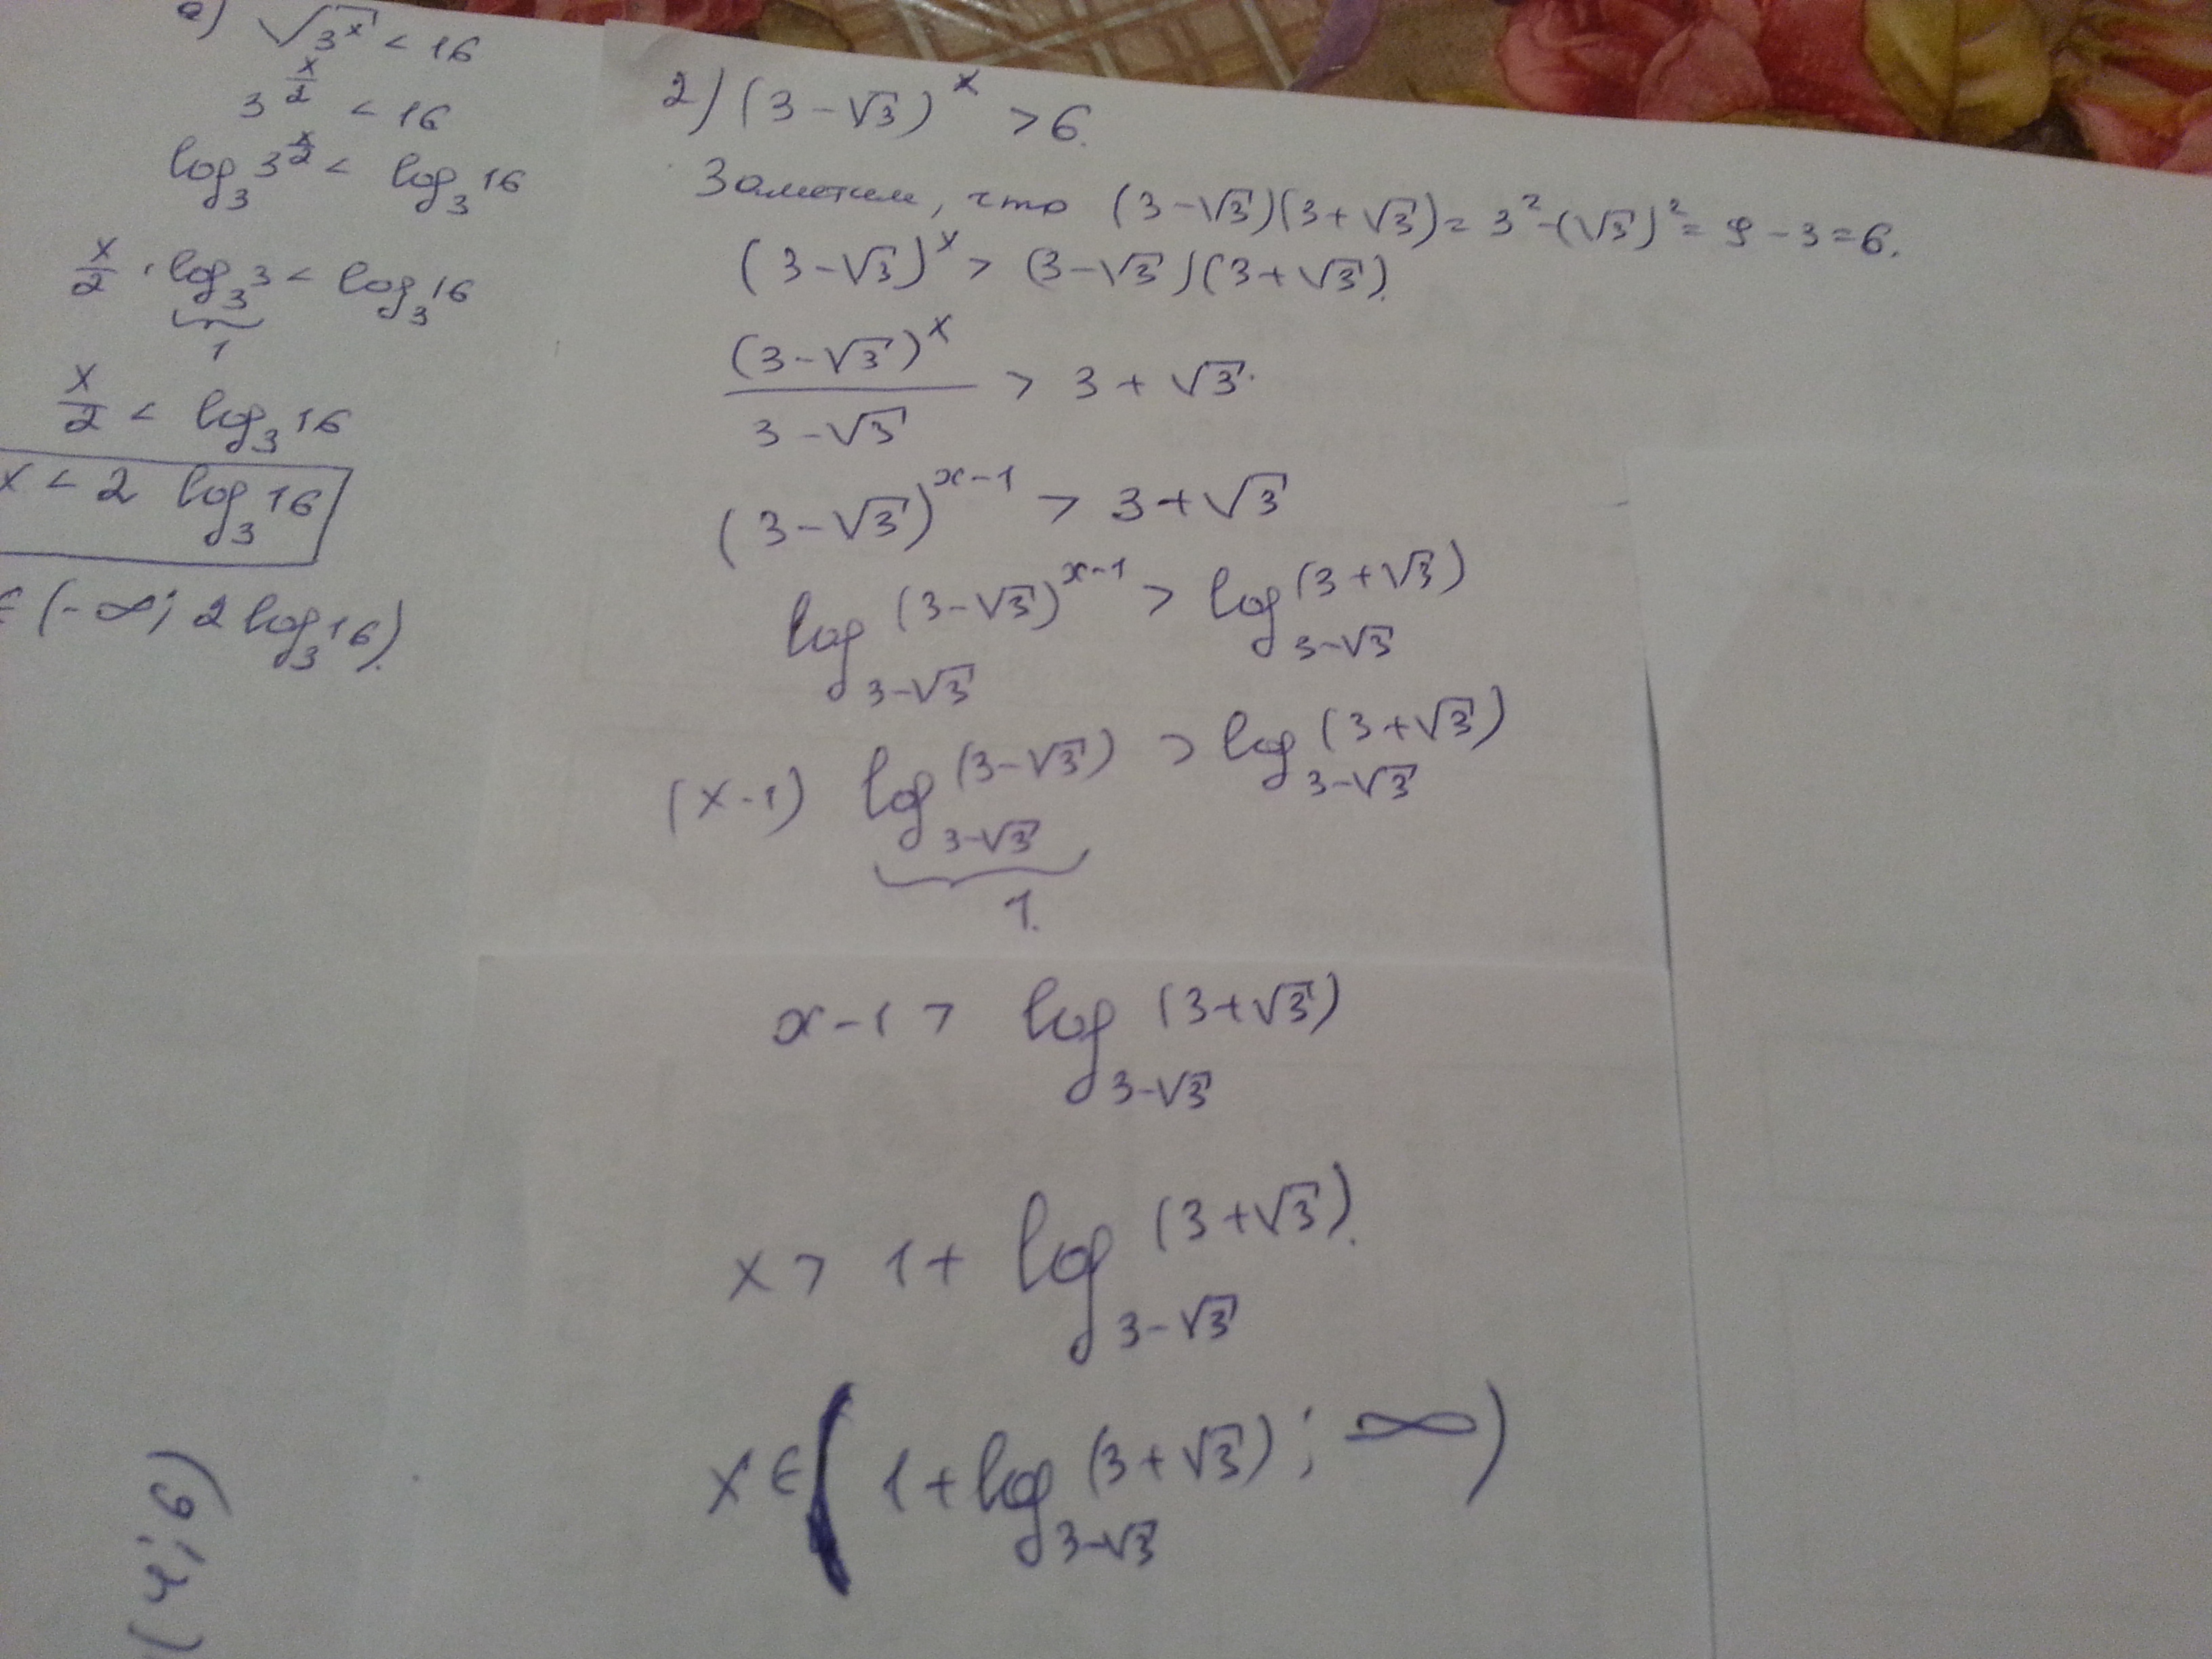 а) √3ˣ < 16
3^(x/2) < 16
log₃ 3^(x/2) < log₃ 16
x/2 · log₃ 3 < log₃ 16
1
x/2 < log₃ 16
x < 2 log₃ 16
∈ (-∞; 2 log₃ 16).
2) (3-√3)ˣ > 6.
Заметим, что (3-√3)(3+√3) = 3² - (√3)² = 9 - 3 = 6.
(3-√3)ˣ > (3-√3)(3+√3).
(3-√3)ˣ / (3-√3) > 3 + √3.
(3-√3)^(x-1) > 3+√3
log_(3-√3) (3-√3)^(x-1) > log_(3-√3) (3+√3)
(x-1) log_(3-√3) (3-√3) > log_(3-√3) (3+√3)
1.
x-1 > log_(3-√3) (3+√3)
x > 1 + log_(3-√3) (3+√3).
x ∈ (1 + log_(3-√3) (3+√3); ∞)